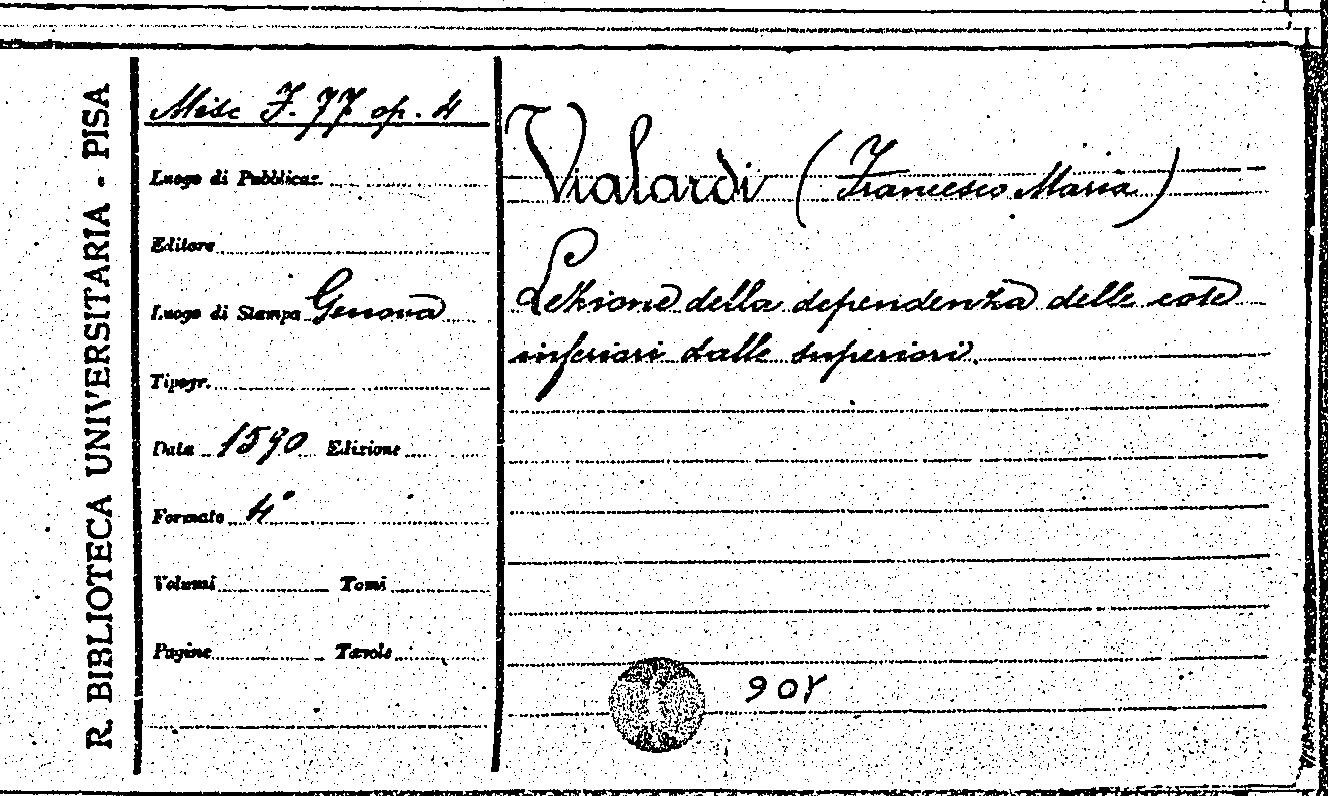 R. BIBLIOTECA UNIVERSITARIA - PISA
Misc F. 77 op. 4
Luogo di Pubblicaz.
Editore
Luogo di Stampa Genova
Tipogr.
Data 1590 Edizione
Formato 4°
Volumi Tomi
Pagine Tavole
Vialardi (Francesco Maria)
Lezione della dependenza delle cose
inferiori dalle superiori.